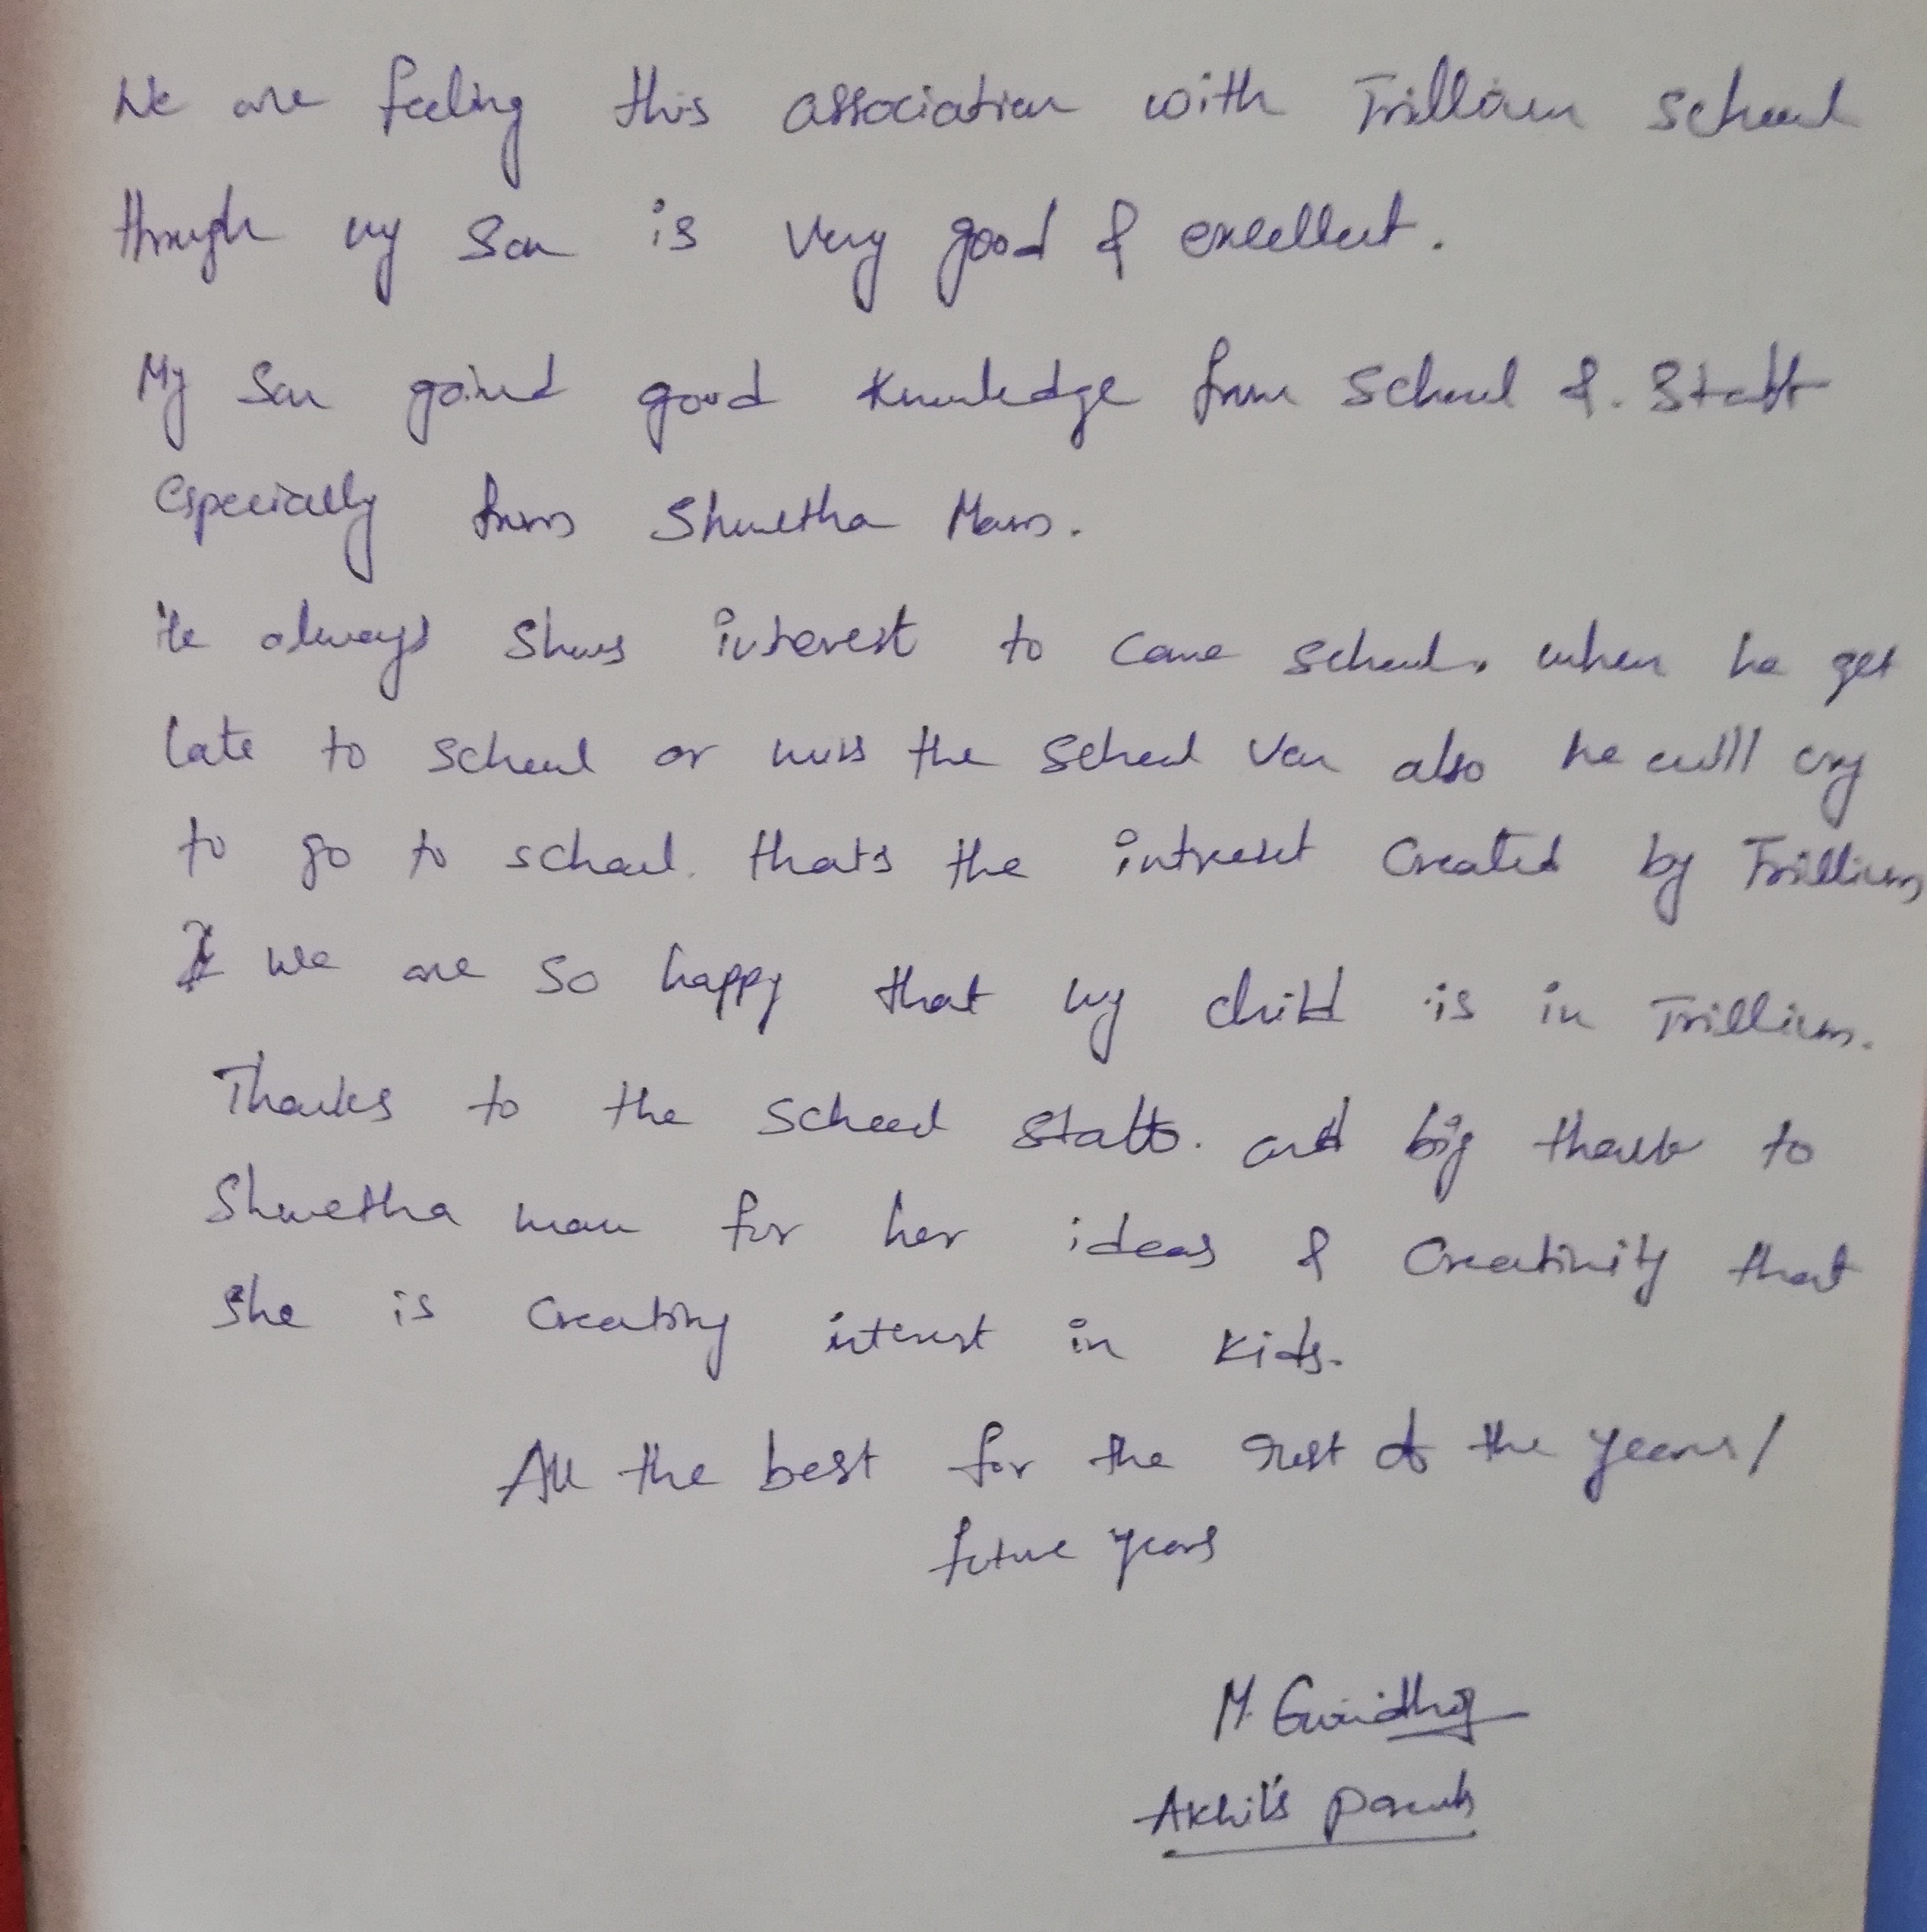 We are feeling this association with Trillium school
through my son is very good & excellent.
My son gained good knowledge from school &. Staff
especially from Shwetha Mam.
He always shows interest to come school. when he get
late to school or miss the school van also he will cry
to go to school. thats the intrest created by Trillium
we are so happy that my child is in Trillium.
Thanks to the school staffs. and big thank to
Shwetha mam for her ideas & creativity that
she is creating interest in kids.
All the best for the rest of the years/
future years
M.
Akhil's parents